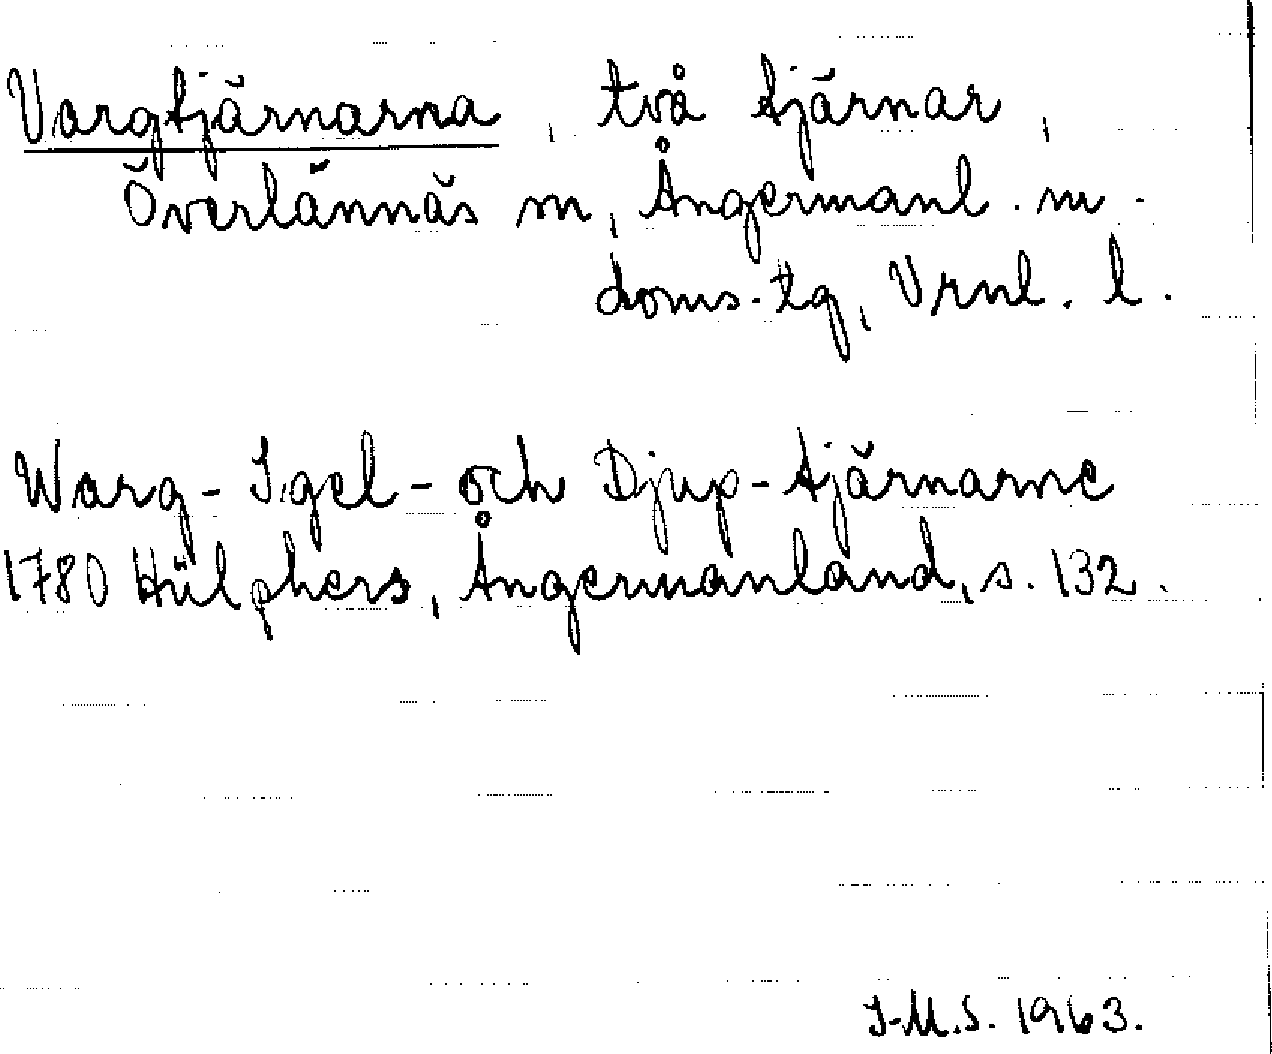 Vargtjärnarna, två tjärnar,
Överlännäs sn, Ångermanl. m.
doms. tg, Vrnl. l.
Warg-Igel-och Djup-tjärnarne
1780 Hülphers, Ångermanland, s. 132.
I-M.S. 1963.